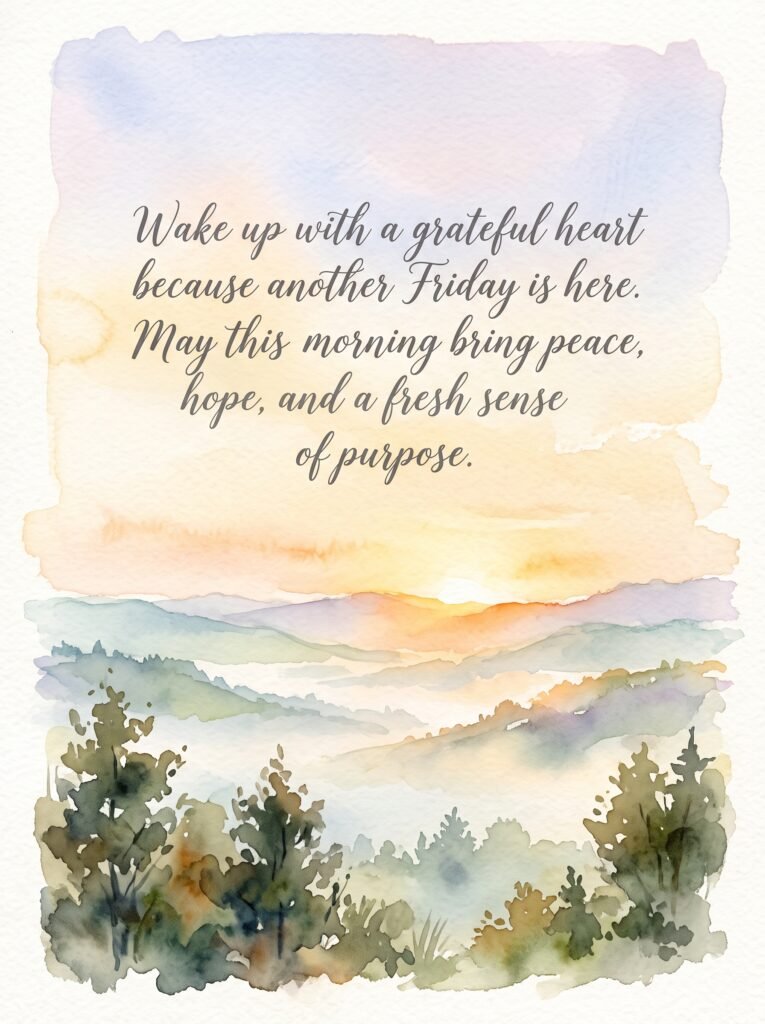 Wake up with a grateful heart
because another Friday is here.
May this morning bring peace,
hope, and a fresh sense
of purpose.